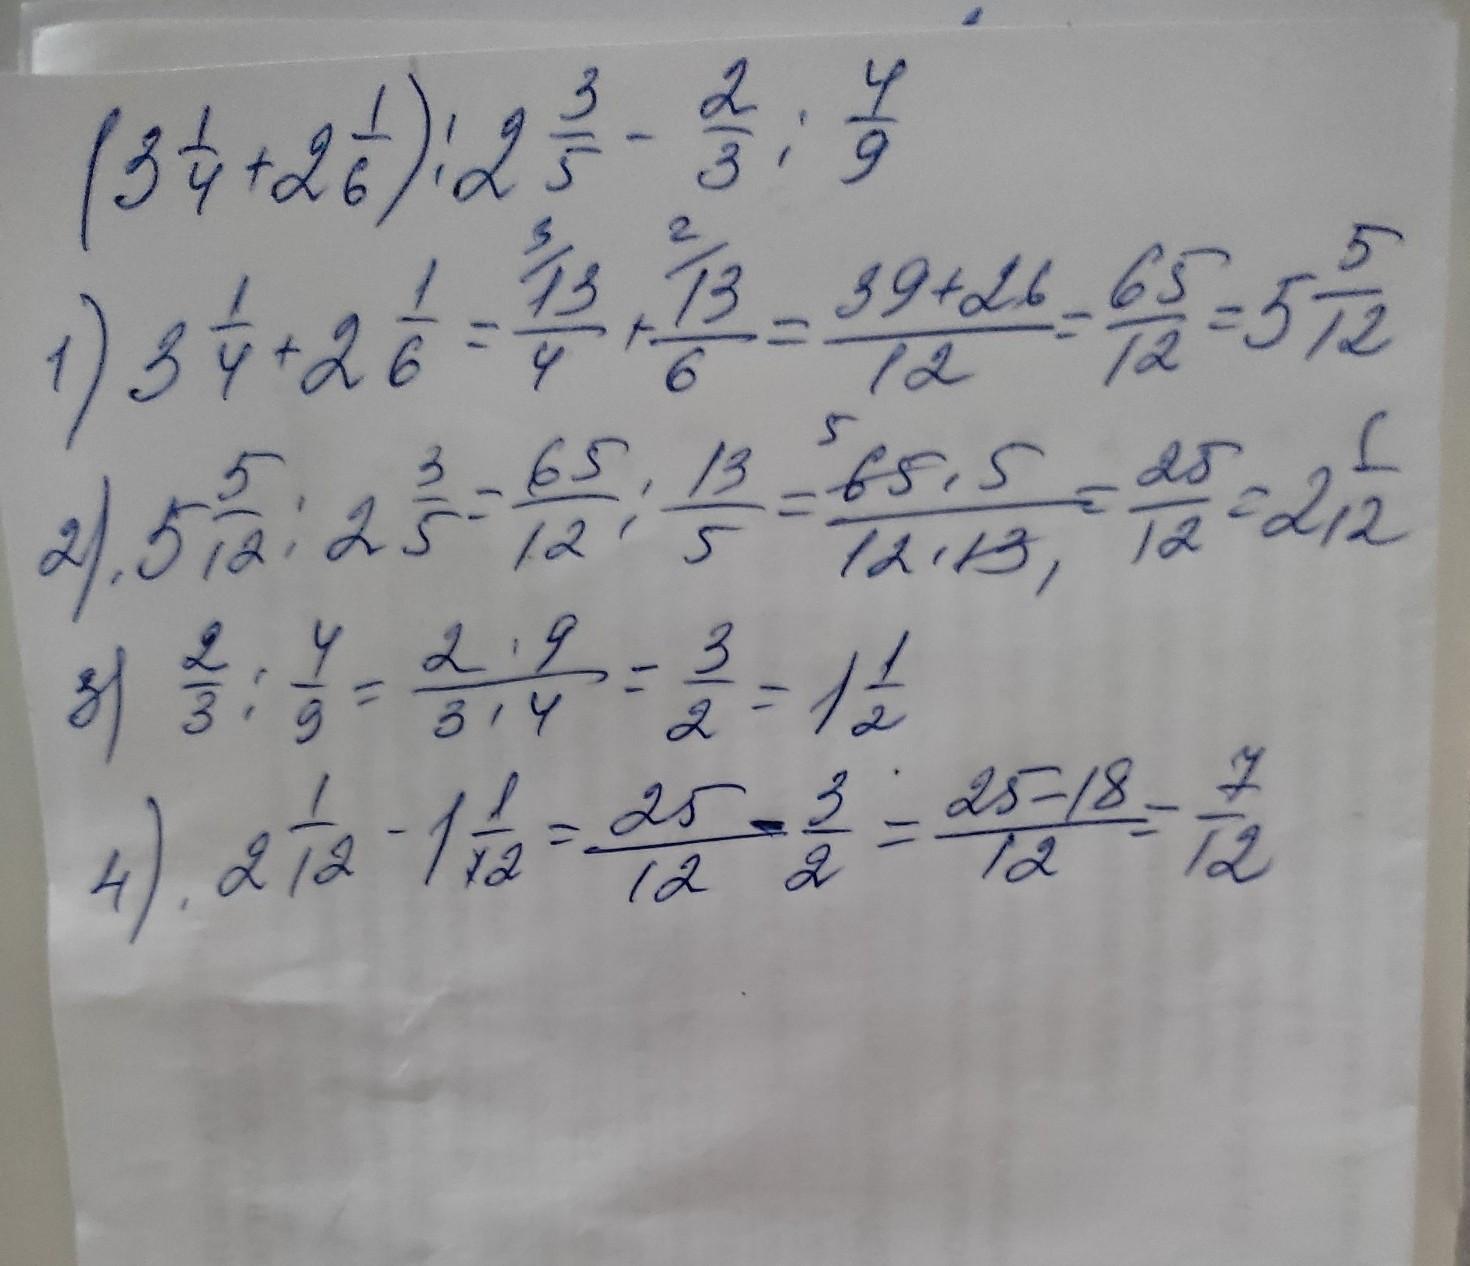 (3 1/4 + 2 1/6) : 2 3/5 - 2/3 : 4/9
1) 3 1/4 + 2 1/6 = 3/ 13/4 + 2/ 13/6 = 39+26/12 = 65/12 = 5 5/12
2). 5 5/12 : 2 3/5 = 65/12 : 13/5 = 5 65·5/12·13, = 25/12 = 2 1/12
3) 2/3 : 4/9 = 2·9/3·4 = 3/2 = 1 1/2
4). 2 1/12 - 1 1/12 = 25/12 - 3/2 = 25-18/12 = 7/12